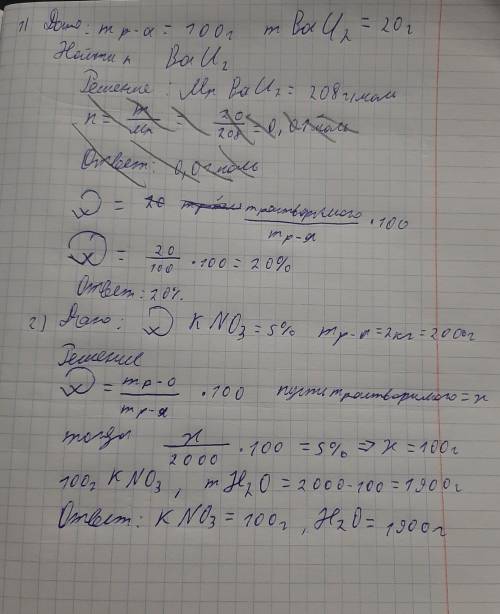 1) Дано: m р-а = 100г m BaCl2 = 20г
Найти n BaCl2
Решение: Mr BaCl2 = 208 г/моль
n = m/Mr = 20/208 = 0,01 моль
Ответ: 0,01 моль
ω = m растворимого / m р-я · 100
ω = 20/100 · 100 = 20%
Ответ: 20%.
2) Дано: ω KNO3 = 5% m р-я = 2кг = 2000г
Решение
ω = m р-о / m р-я · 100 пусть m растворимого = x
тогда x/2000 · 100 = 5% => x = 100г
100г KNO3, m H2O = 2000-100 = 1900г
Ответ: KNO3 = 100г, H2O = 1900г